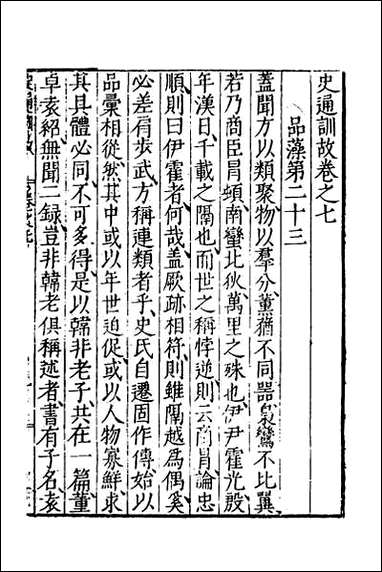 史通訓故卷之七
品藻第二十三
蓋聞方以類聚物以羣分薰蕕不同器梟鸞不比翼
若乃商臣冒頓南蠻北狄萬里之殊也伊尹霍光殷
年漢日千載之隔也而世之稱悖逆則云商冒論忠
順則曰伊霍者何哉盖厥跡相符則雖隔越為偶奚
必差肩步武方稱連類者乎史氏自遷固作傳始以
品彙相從然其中或以年世迫促或以人物寡鮮求
其具體必同不可多得是以韓非老子共在一篇董
卓袁紹無聞二録豈非韓老俱稱述者書有子名袁